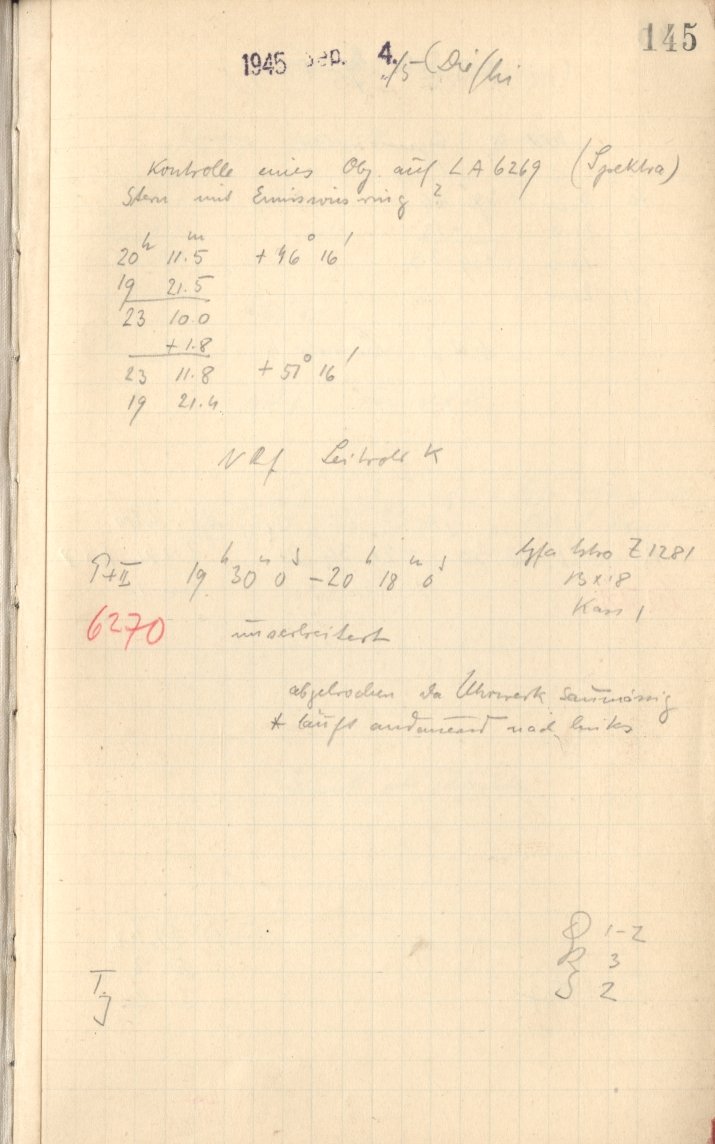 145
1945 Sep. 4./5 (Die/Mi
Kontrolle eines Obj. auf LA 6269 (Spektra)
Stern mit Emissionsring ?
20h 11.5m +46° 16'
19 21.5
23 10.0
+1.8
23 11.8 +51° 16'
19 21.4
K
P+II 19h 30m 0s – 20h 18m 0s
Agfa Z 1281
13 x 18
Kass 1
6270 unverbreitert
abgebrochen da Uhrwerk saumässig
* läuft andauernd nach links
1-2
R 3
S 2
T.
J